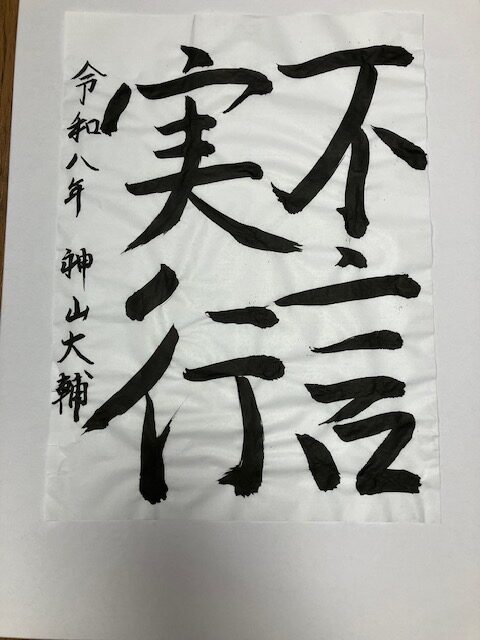 不言
実行
令和八年 神山大輔